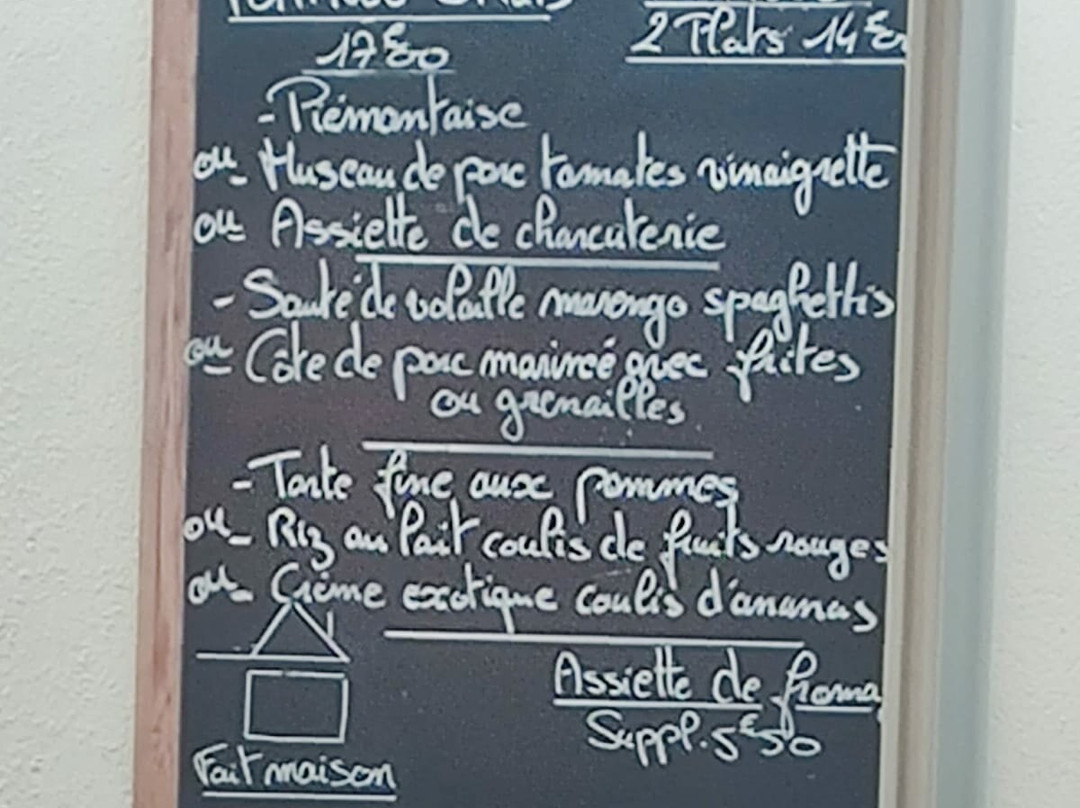 17€80
2 Plats 14€
- Piémontaise
ou - Museau de porc tomates vinaigrette
ou - Assiette de charcuterie
- Sauté de volaille marengo spaghettis
ou - Côte de porc marinée avec frites
ou grenailles
- Tarte fine aux pommes
ou - Riz au lait coulis de fruits rouges
ou - Crème exotique coulis d'ananas
Assiette de froma
Suppl. 5€50
Fait maison